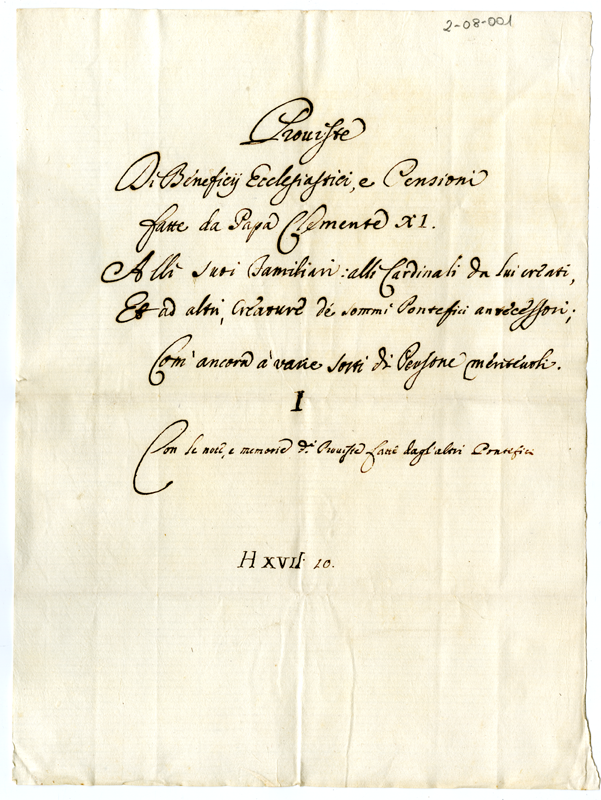 2-08-001
Prouiste
Di Beneficij Ecclesiastici, e Pensioni
fatte da Papa Clemente XI.
Alli suoi Familiari: alli Cardinali da lui creati,
Et ad altri, Creature de sommi Pontefici antecessori;
Com' ancora à varie sorti di Persone meriteuoli.
I
Con le note, e memorie di Prouiste fatte dagl'altri Pontefici
H XVII 10.